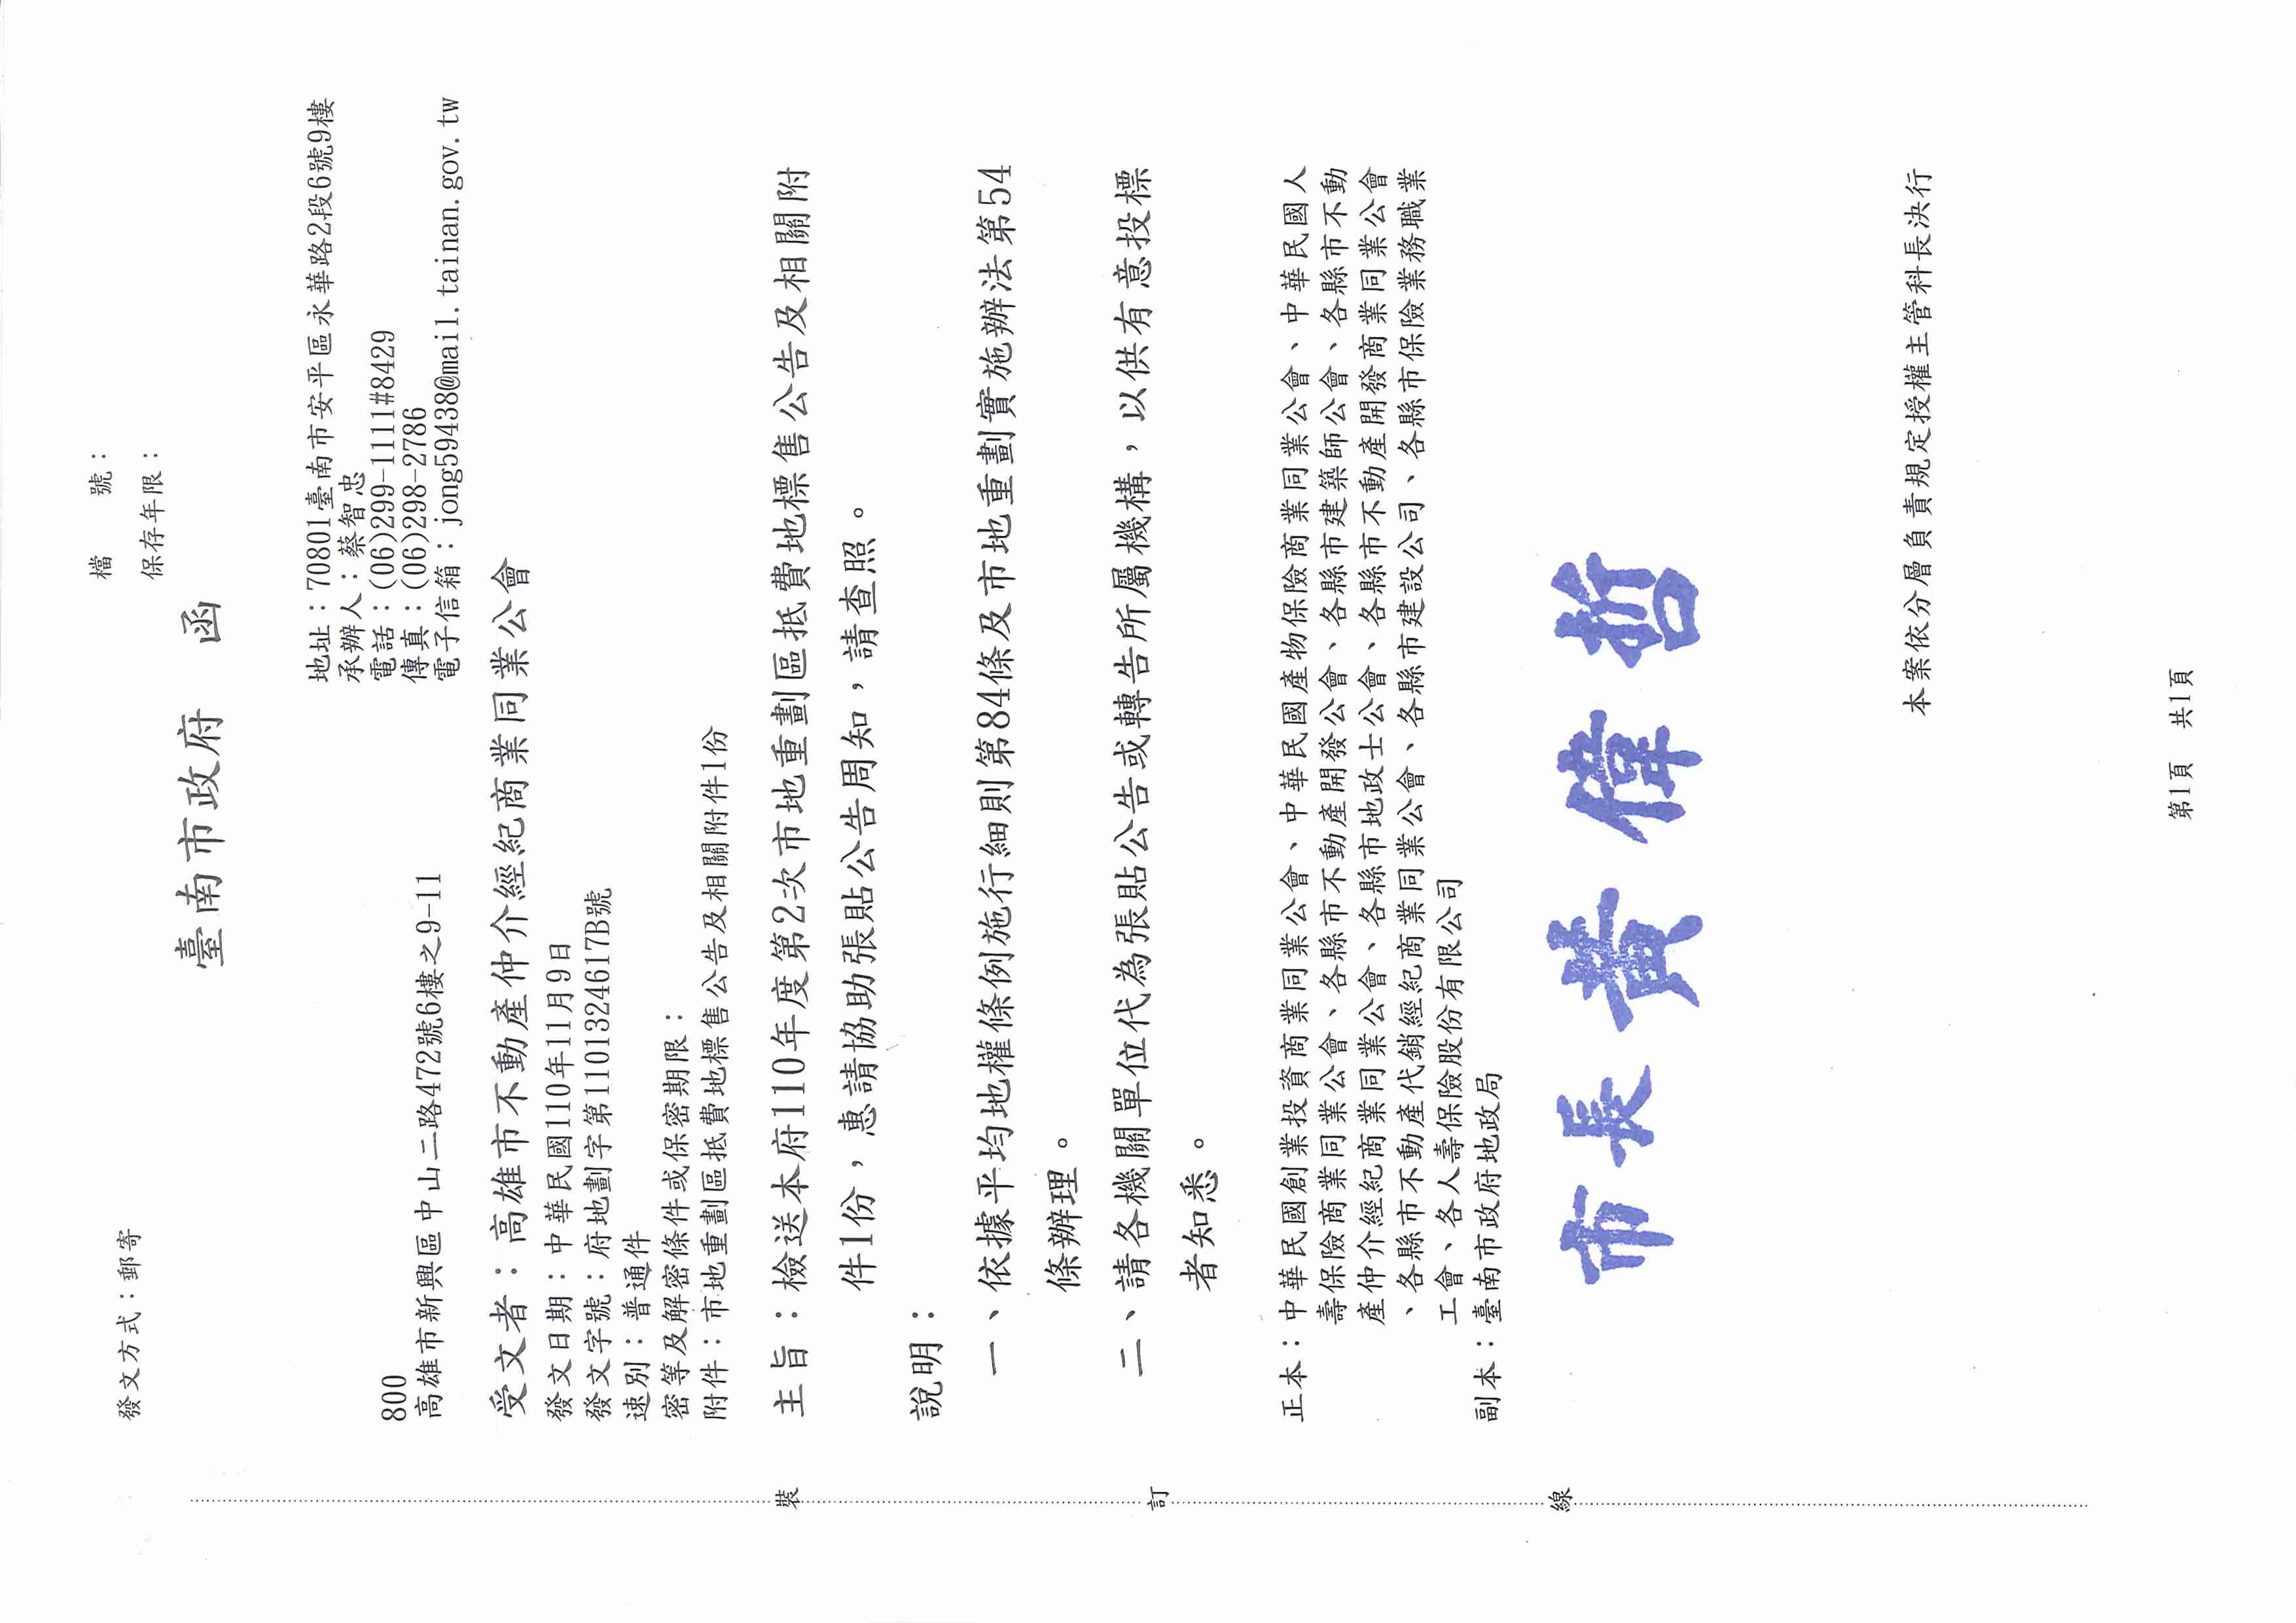 檔　　號：
保存年限：
發文方式：郵寄
臺南市政府　函
地址：70801臺南市安平區永華路2段6號9樓
承辦人：蔡智忠
電話：(06)299-1111#8429
傳真：(06)298-2786
電子信箱：jong59438@mail.tainan.gov.tw
800
高雄市新興區中山二路472號6樓之9-11
受文者：高雄市不動產仲介經紀商業同業公會
發文日期：中華民國110年11月9日
發文字號：府地劃字第1101324617B號
速別：普通件
密等及解密條件或保密期限：
附件：市地重劃區抵費地標售公告及相關附件1份
主旨：檢送本府110年度第2次市地重劃區抵費地標售公告及相關附
件1份，惠請協助張貼公告周知，請查照。
說明：
一、依據平均地權條例施行細則第84條及市地重劃實施辦法第54
條辦理。
二、請各機關單位代為張貼公告或轉告所屬機構，以供有意投標
者知悉。
正本：中華民國創業投資商業同業公會、中華民國產物保險商業同業公會、中華民國人
壽保險商業同業公會、各縣市不動產開發公會、各縣市建築師公會、各縣市不動
產仲介經紀商業同業公會、各縣市地政士公會、各縣市不動產開發商業同業公會
、各縣市不動產代銷經紀商業同業公會、各縣市建設公司、各縣市保險業務職業
工會、各人壽保險股份有限公司
副本：臺南市政府地政局
市長黃偉哲
本案依分層負責規定授權主管科長決行
裝
訂
線
第1頁　共1頁